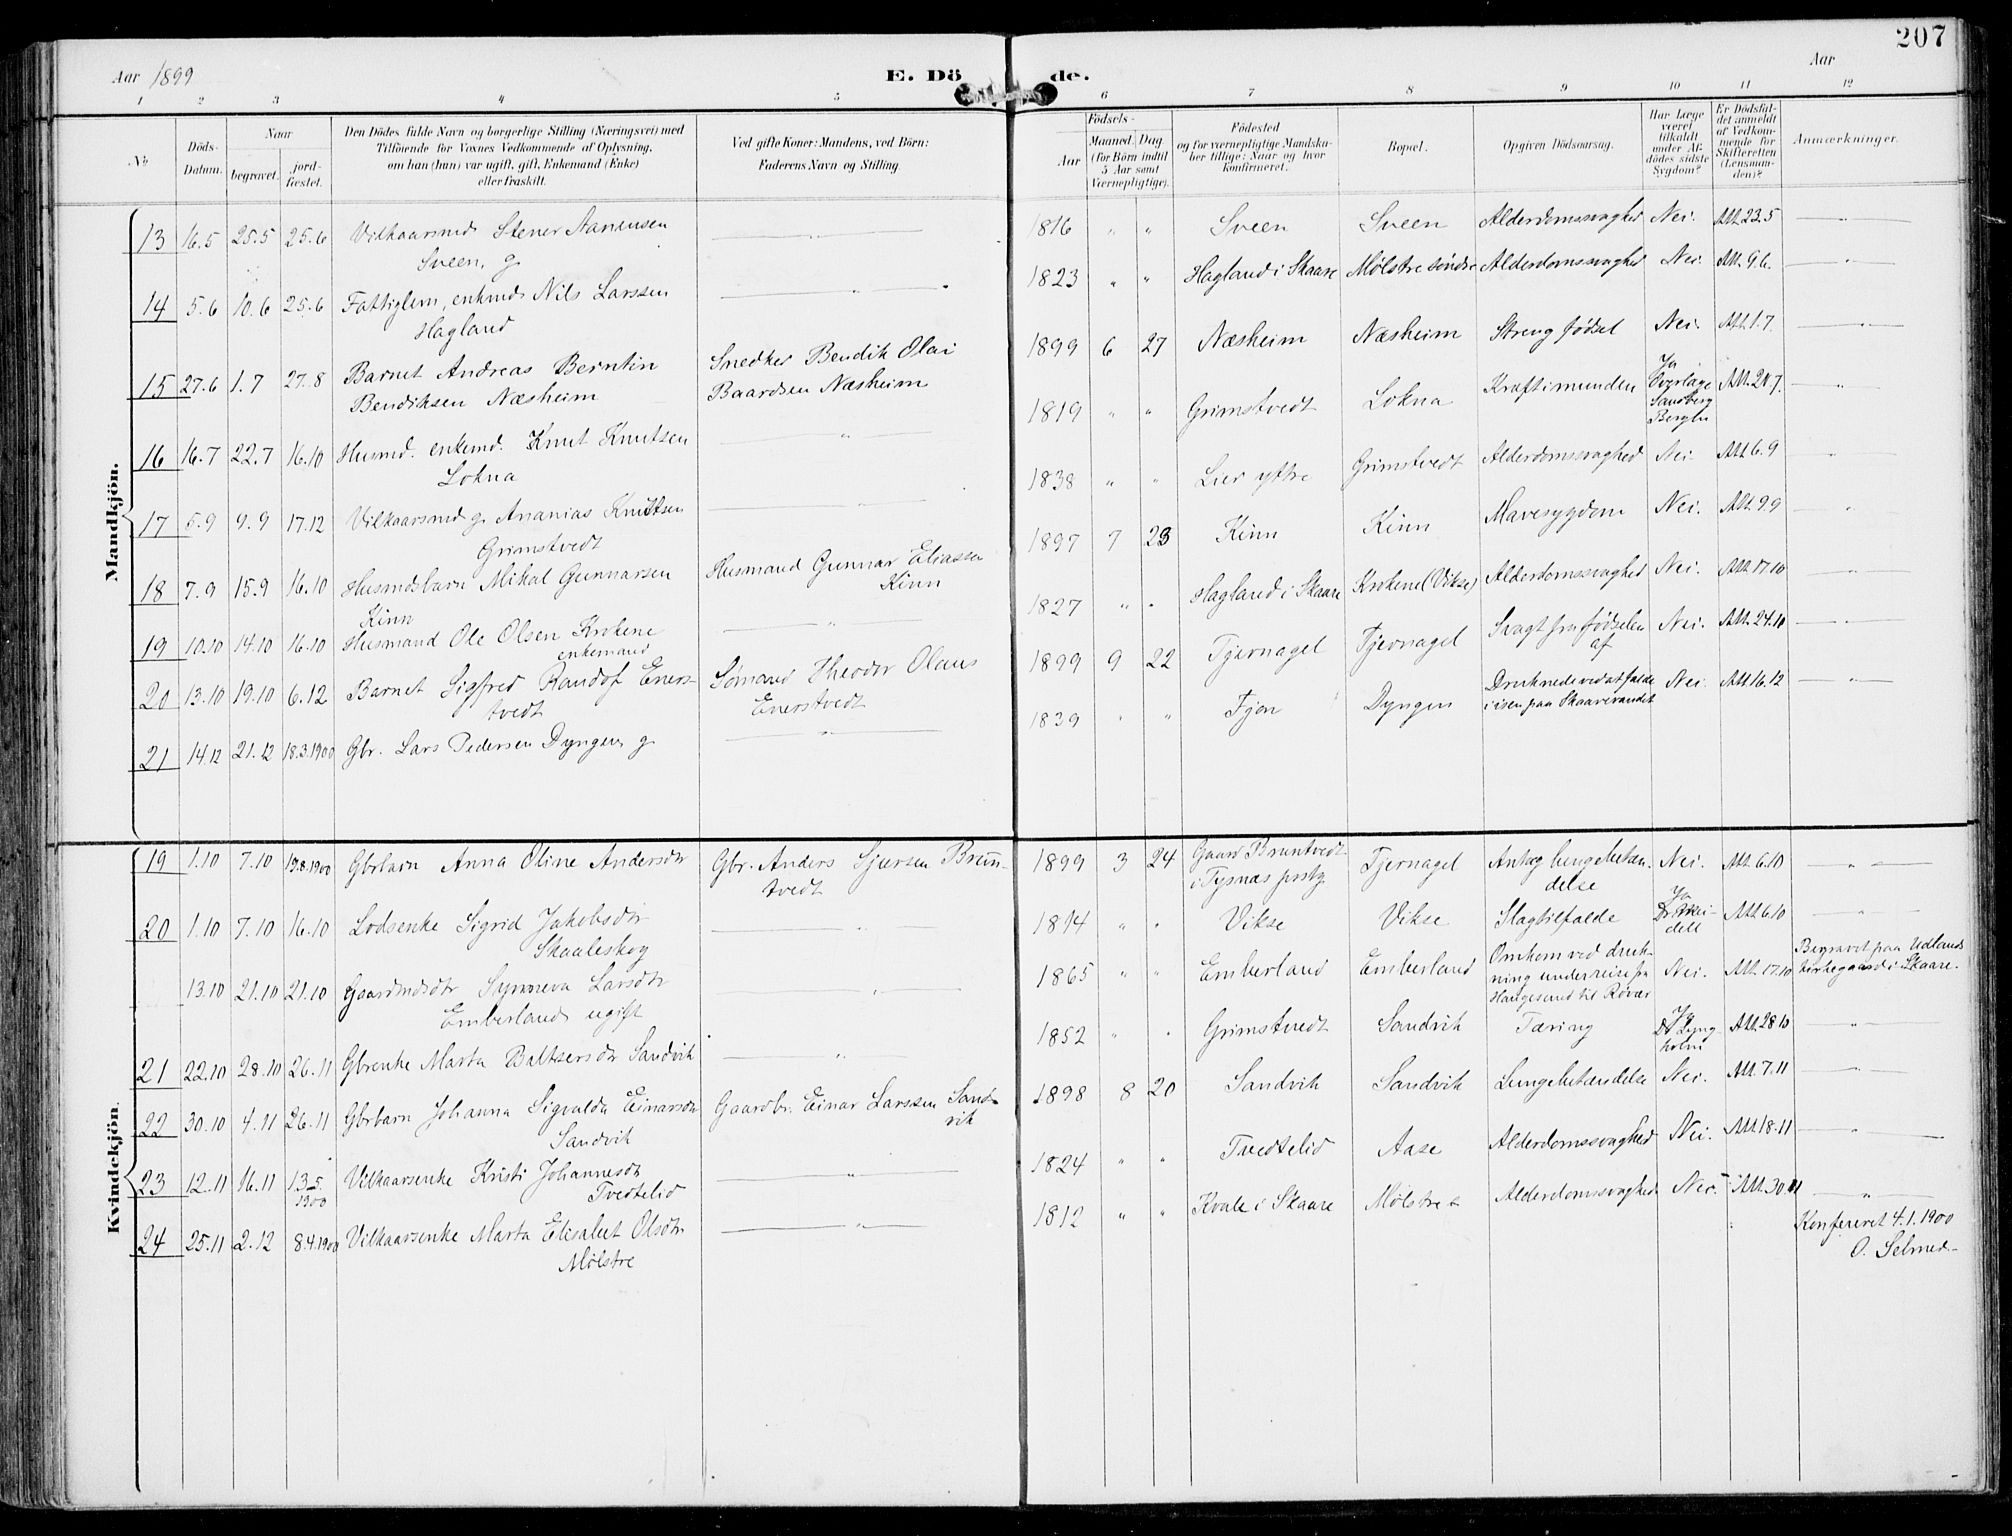 207
Aar 1899
E. Dö de.
Aar
1 2 3 4 5 6 7 8 9 10 11 12
No
Döds-
Datum.
Naar
begravet.
jord-
fæstet.
Den Dödes fulde Navn og borgerlige Stilling (Næringsvei) med
Tilföiende for Voxnes Vedkommende af Oplysning,
om han (hun) var ugift, gift, Enkemand (Enke)
eller fraskilt.
Ved gifte Koner: Mandens, ved Börn:
Faderens Navn og Stilling.
Födsels-
Aar
Maaned. Dag
(for Börn indtil
5 Aar samt
Værnepligtige).
Födested
og for værnepligtige Mandska-
ber tillige: Naar og hvor
konfirmeret.
Bopæl.
Opgiven Dödsaarsag.
Har Læge
været
tilkaldt
under Af-
dödes sidste
Sygdom?
Er Dödsfal-
det anmeldt
af Vedkom-
mende for
Skifteretten
(Lensman-
den)?
Anmærkninger.
Mandkjön.
13 16.5 25.5 25.6 Vilkaarsmd Stener Aanensen
Sveen, g
1816 " " Sveen Sveen Alderdomssvaghed Nei. Att. 23.5
14 5.6 10.6 25.6 Fattiglem, enkmd Nils Larssen
Hagland
1823 " " Hagland i Skaare Mølstre søndre Alderdomssvaghed Nei. Att. 9.6.
15 27.6 1.7 27.8 Barnet Andreas Berntin
Bendiksen Næsheim
Snedker Bendik Olai
Baardsen Næsheim
1899 6 27 Næsheim Næsheim Streng fødsel Nei. Att. 1.7.
16 16.7 22.7 16.10 Husmd. enkemd. Knut Knutsen
Lokna
1819 " " Grimstvedt Lokna Kræft i munden Ja
Overlæge
Sandberg
Bergen
Att. 20.7.
17 5.9 9.9 17.12 Vilkaarsmd g. Ananias Knutsen
Grimstvedt
1838 " " Lier ytre Grimstvedt Alderdomssvaghed Nei. Att. 6.9
18 7.9 15.9 16.10 Husmdsbarn Mikal Gunnarsen
Kinn
Husmand Gunnar Eliassen
Kinn
1897 7 23 Kinn Kinn Mavesygdom Nei. Att. 9.9
19 10.10 14.10 16.10 Husmand Ole Olsen Krokene
enkemand
1827 " " Hagland i Skaare Krokene (Vikse) Alderdomssvaghed Nei. Att. 17.10
20 13.10 19.10 6.12 Barnet Sigfred Randof Eners-
tvedt
Sømand Theodor Olaus
Enerstvedt
1899 9 22 Tjernagel Tjernagel Svagt fra fødselen
af
Nei. Att. 24.10
21 14.12 21.12 18.3.1900 Gbr. Lars Pedersen Dyngen, g
1839 " " Tjon Dyngen Druknede ved at falde
i isen paa Skaarevandet
Nei. Att. 16.12
Kvindekjön.
19 1.10 7.10 19.8.1900 Gbrbarn Anna Oline Andersdtr
Gbr. Anders Sjursen Brun-
tvedt
1899 3 24 Gaard Bruntvedt
i Tysnæs prstg.
Tjernagel Antag. lungebetæn-
delse
Nei. Att. 6.10
20 1.10 7.10 16.10 Lodsenke Sigrid Jakobsdtr
Skaaleskog
1814 " " Vikse Vikse Slagtilfælde Ja
Att. 6.10
13.10 21.10 21.10 Gaardmdsdtr Synneva Larsdtr
Emberland, ugift
1865 " " Emberland Emberland Omkom ved druk-
ning underreise fra
Haugesund til Røvær
Nei. Att. 17.10 Begravet paa Udlands
kirkegaard i Skaare.
21 22.10 28.10 26.11 Gbrenke Marta Baltsersdtr Sandvik
1852 " " Grimstvedt Sandvik Tæring Ja
Dr Lyng-
holm
Att. 28.10
22 30.10 4.11 26.11 Gbrbarn Johanna Sigvalda Einarsdtr
Sandvik
Gaardbr. Einar Larssen Sand-
vik
1898 8 20 Sandvik Sandvik Lungebetændelse Nei. Att. 7.11
23 12.11 16.11 13.5.
1900
Vilkaarsenke Kristi Johannesdtr
Tvedtelid
1824 " " Tvedtelid Aase Alderdomssvaghed Nei. Att. 18.11
24 25.11 2.12 8.4.1900 Vilkaarsenke Marta Elisabet Olsdtr
Mølstre
1812 " " Kvale i Skaare Mølstre Alderdomssvaghed Nei. Att. 30.11
Konfereret 4.1.1900
O. Selmer